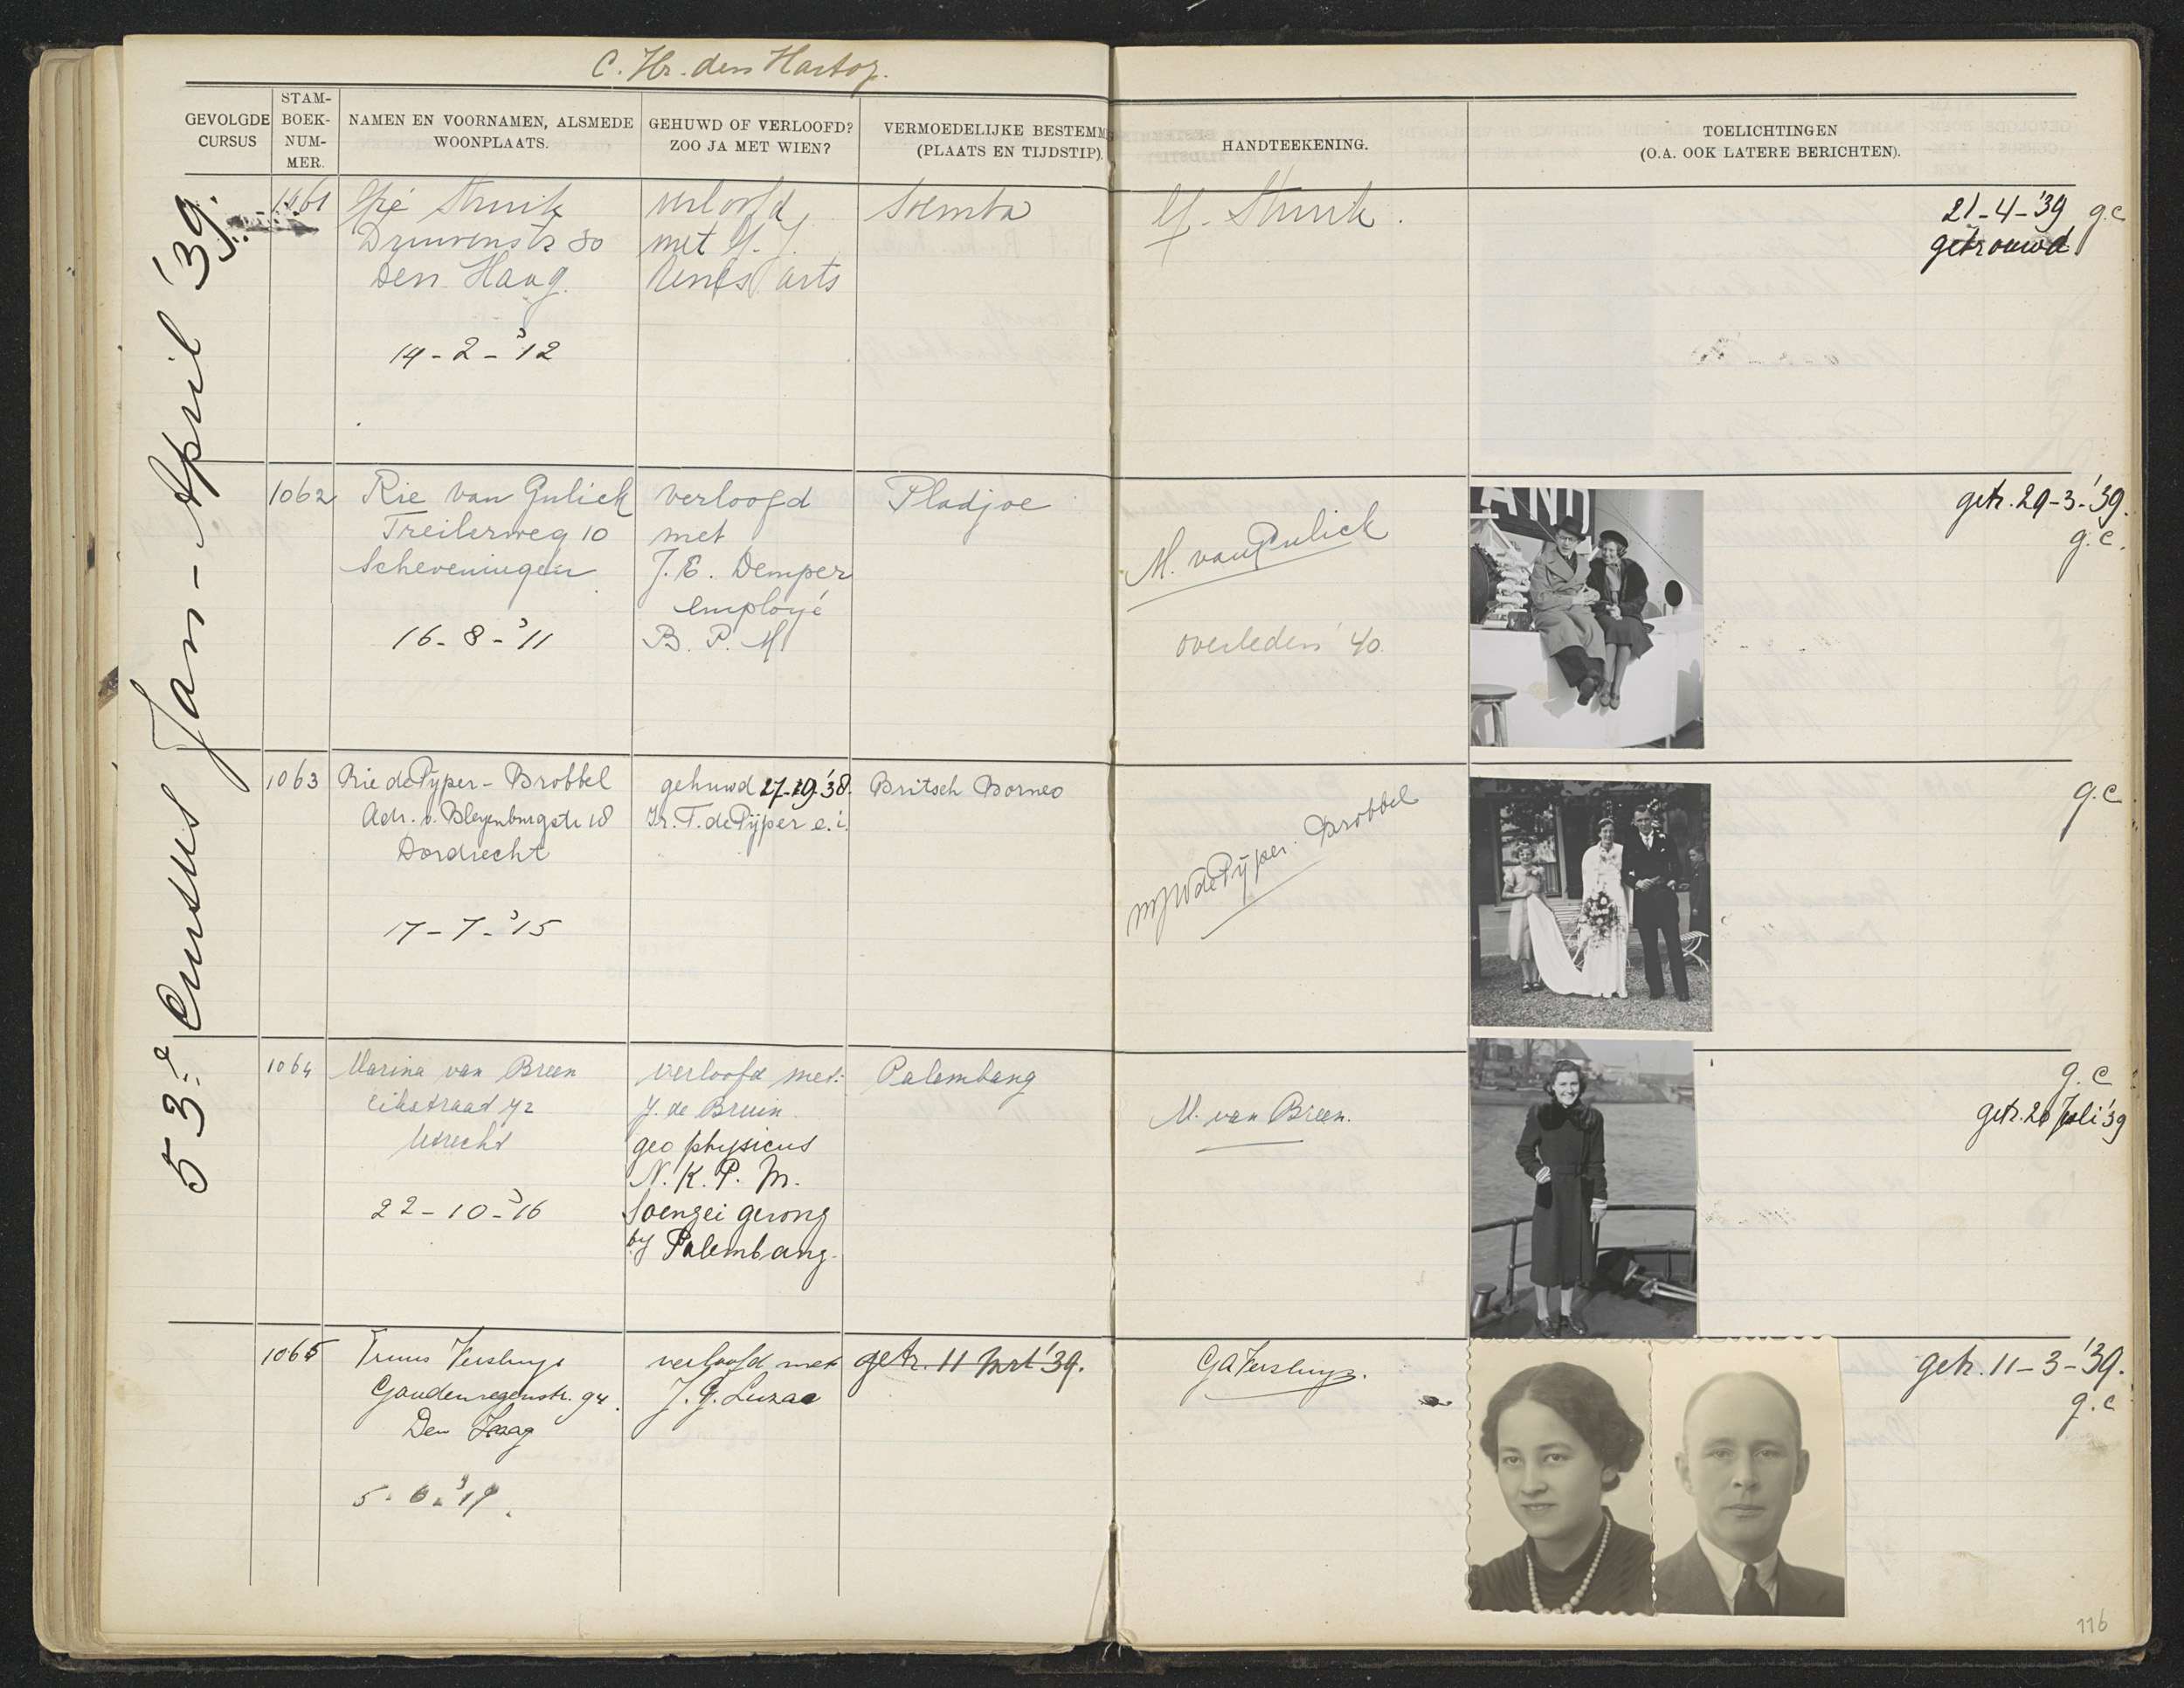 C. Hr. den Hartog.
GEVOLGDE CURSUS
STAM-BOEK-NUM-MER.
NAMEN EN VOORNAMEN, ALSMEDE WOONPLAATS.
GEHUWD OF VERLOOFD? ZOO JA MET WIEN?
VERMOEDELIJKE BESTEMM
(PLAATS EN TIJDSTIP).
HANDTEEKENING.
TOELICHTINGEN
(O.A. OOK LATERE BERICHTEN).
53e Cursus Jan - April '39.
1061
Struik
30
Den Haag.
14-2-'12
verloofd
met
arts
Soemba
Struik.
21-4-'39 g.c
getrouwd
1062
Rie van Gulick
Treilerweg 10
Scheveningen
16-8-'11
verloofd
met
J.E. Demper
employé
B.P.M
Pladjoe
M. van Gulick
overleden '40.
LAND
getr. 29-3-'39.
g.c.
1063
Rie de Pijper-Brobbel
Adr. v. Bleyenburgstr 18
Dordrecht
17-7-'15
gehuwd '38.
Ir. T. de Pijper e.i.
Britsch Borneo
de Pijper-Brobbel
g.c
1064
Marina van Breen
Utrecht
22-10-'16
verloofd met:
J. de Bruin.
geo physicus
N.K.P.M.
Soengei gerong
by Palembang.
Palembang
M. van Breen.
g.c
getr. 20 Juli '39
1065
Truus Versluys
Goudenregenstr. 94.
Den Haag
verloofd met
J.G. Luzac
getr. 11 Mrt '39.
GAVersluys.
getr. 11-3-'39.
g.c
116